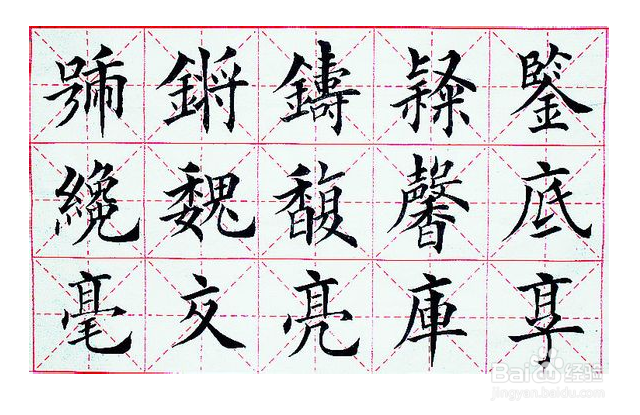 鏘 鑄 鑒
魏 馥 馨 底
毫 文 亮 庫 享
Bai 经验
jingyan.baidu.com